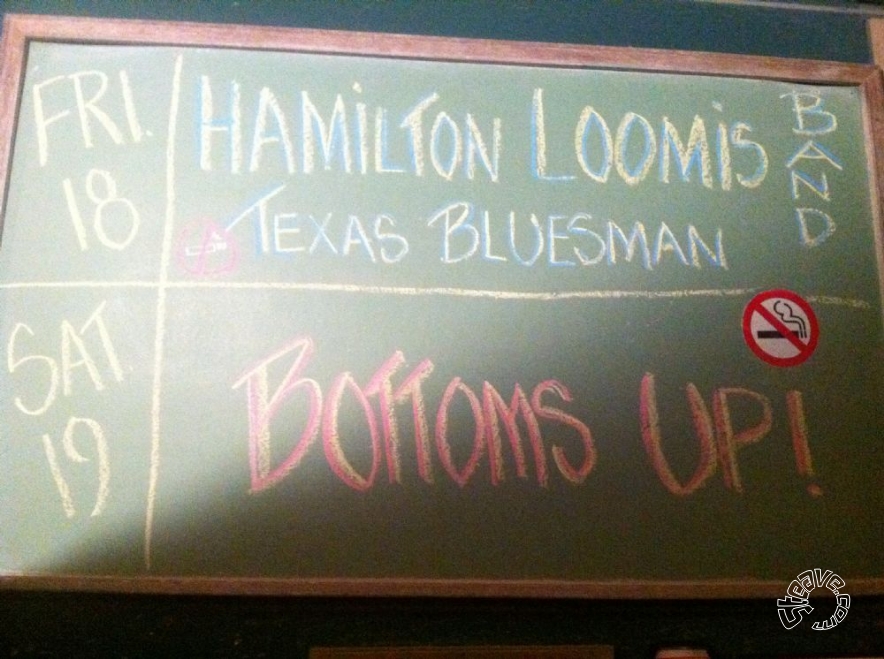 FRI. HAMILTON LOOMIS BAND
18 TEXAS BLUESMAN
SAT. BOTTOMS UP!
19
steave.com